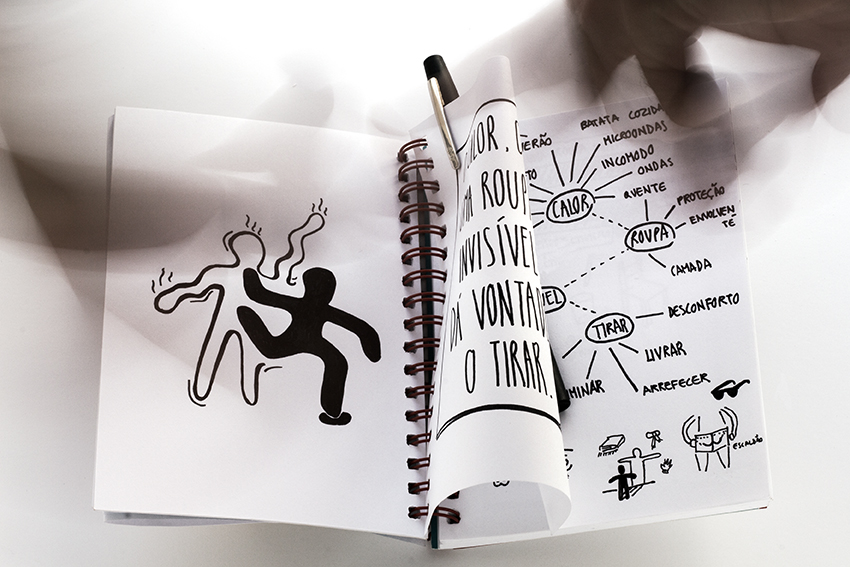 LOR,
MA ROUP
INVISÍVEL
DÁ VONTAD
O TIRAR.
ERÃO
BATATA COZIDA
MICROONDAS
INCOMODO
ONDAS
QVENTE
TO
CALOR
PROTEÇÃO
ENVOLVEN
TE
ROUPA
CAMADA
EL
DESCONFORTO
TIRAR
LIVRAR
ARREFECER
MINAR
ESCALDÃO